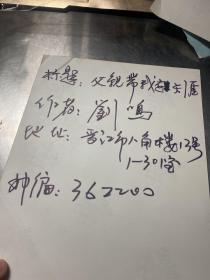 标题：父亲带我走天涯
作者：劉鳴
地址：晋江市八角楼13号
1-301室
邮编：362200